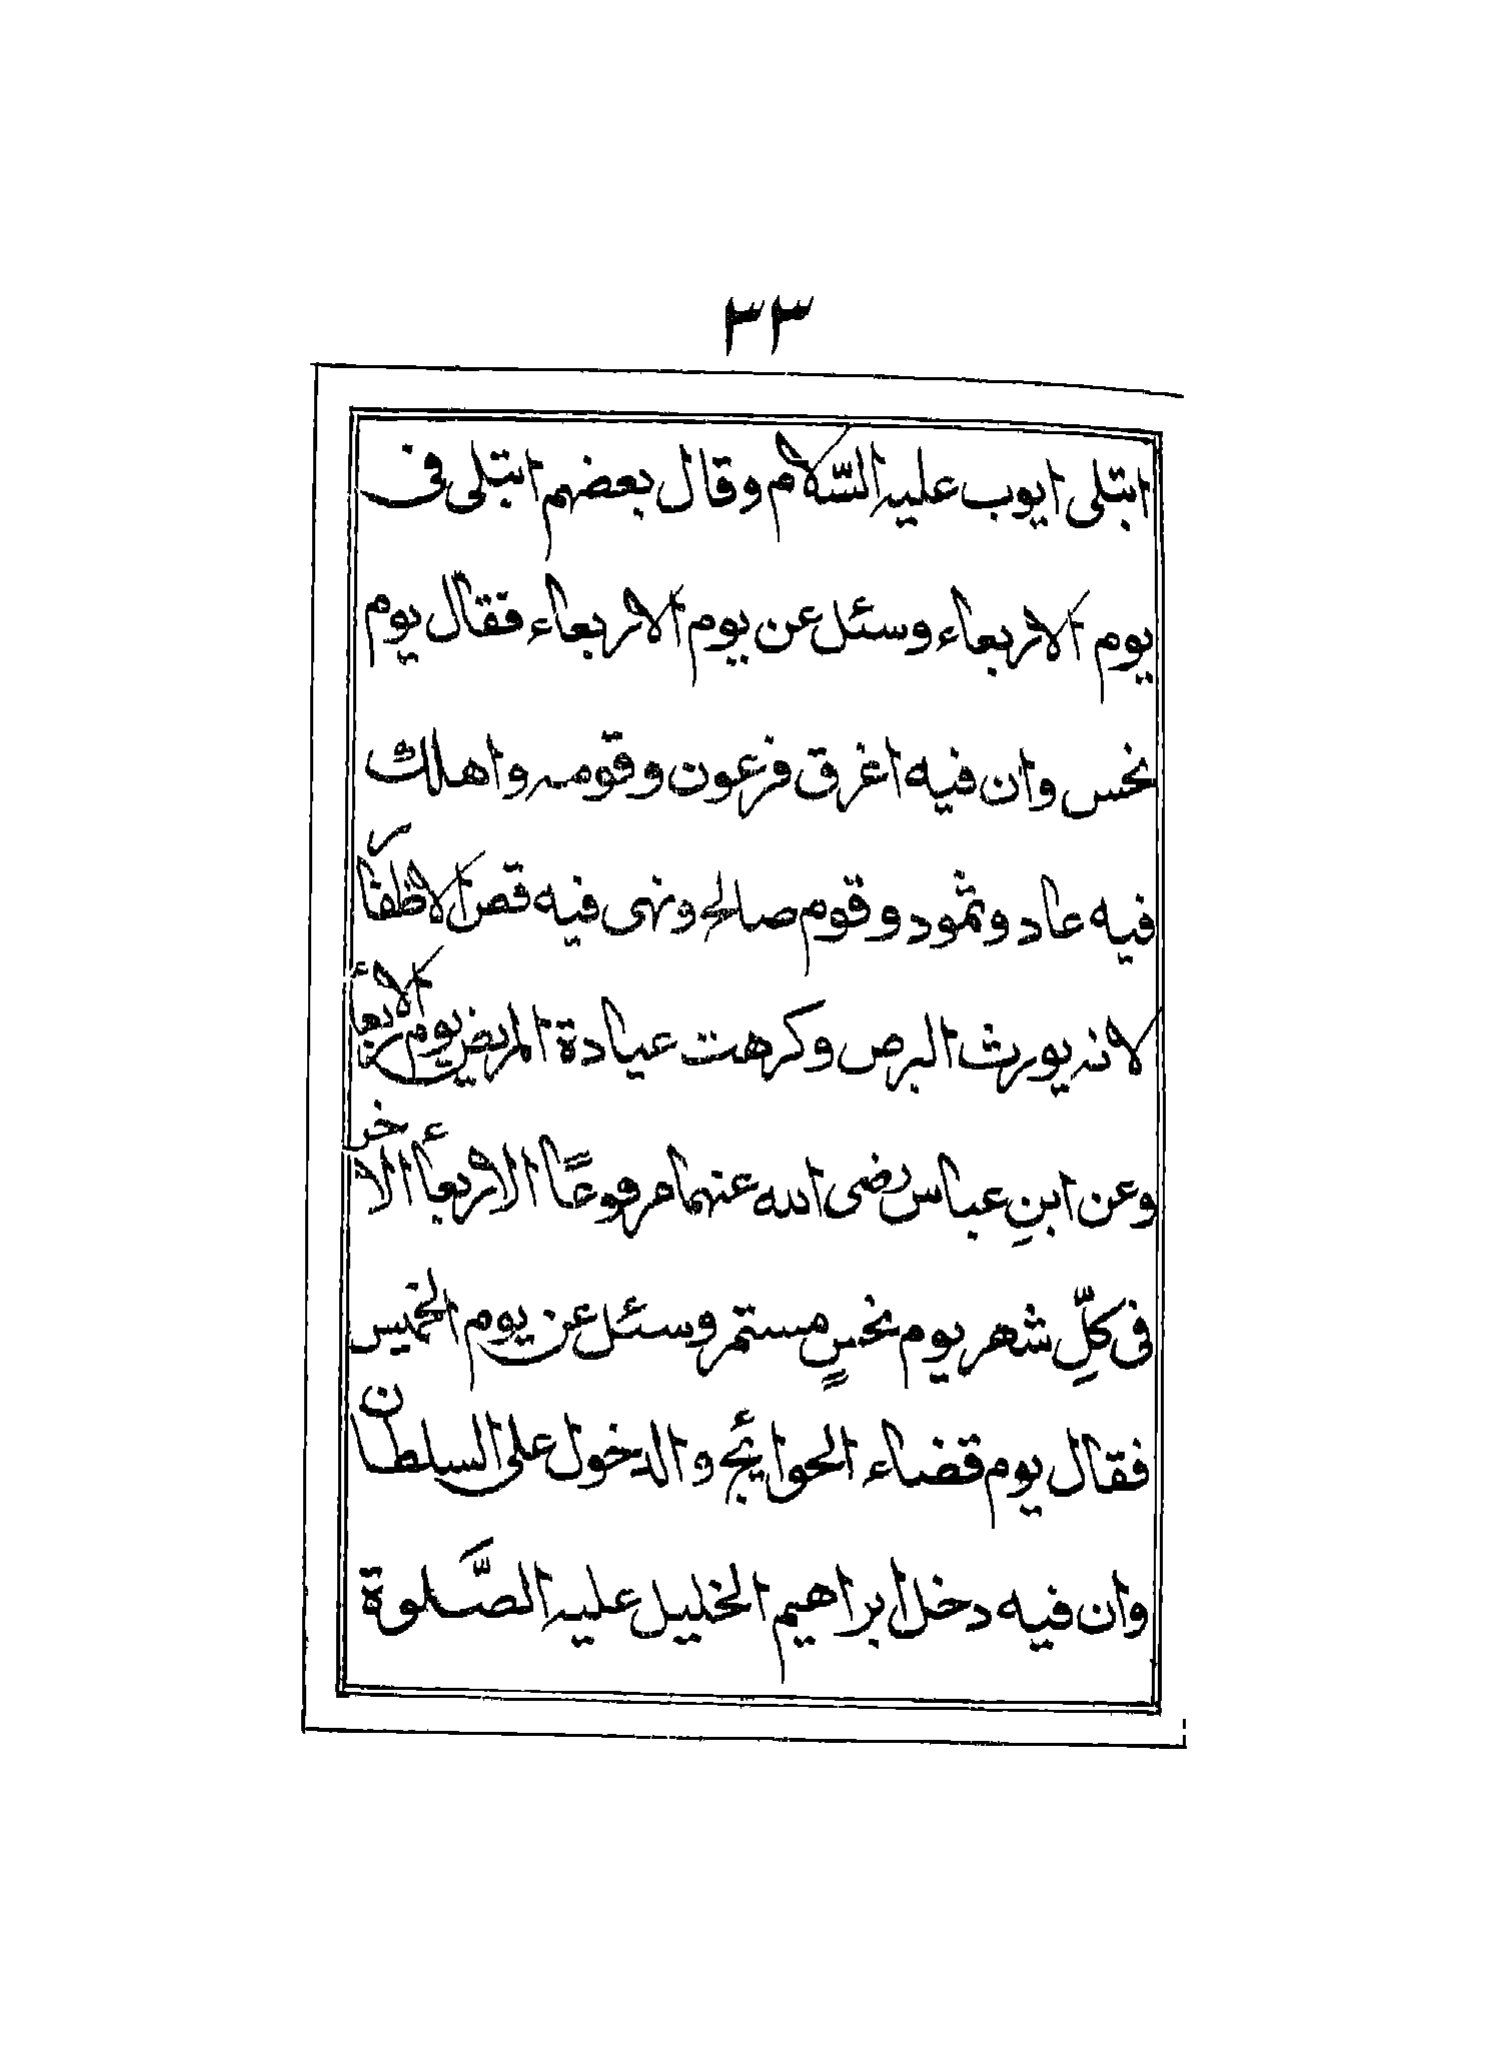 ٣٣
ابتلى ايوب عليه السّلام وقال بعضهم ابتلى فى
يوم الاربعاء وسئل عن يوم الاربعاء فقال يوم
نحس وان فيه اغرق فرعون وقومه واهلك
فيه عاد وثمود وقوم صالح ونهى فيه قص الاظفار
لانه يورث البرص وكرهت عيادة المريض يوم الاربعاء
وعن ابنِ عباس رضى الله عنهما مرفوعًا الاربعاء الاخر
فى كلِّ شهر يوم نحسٍ مستمر وسئل عن يوم الخميس
فقال يوم قضاء الحوائج والدخول على السلطان
وان فيه دخل ابراهيم الخليل عليه الصَّلوة